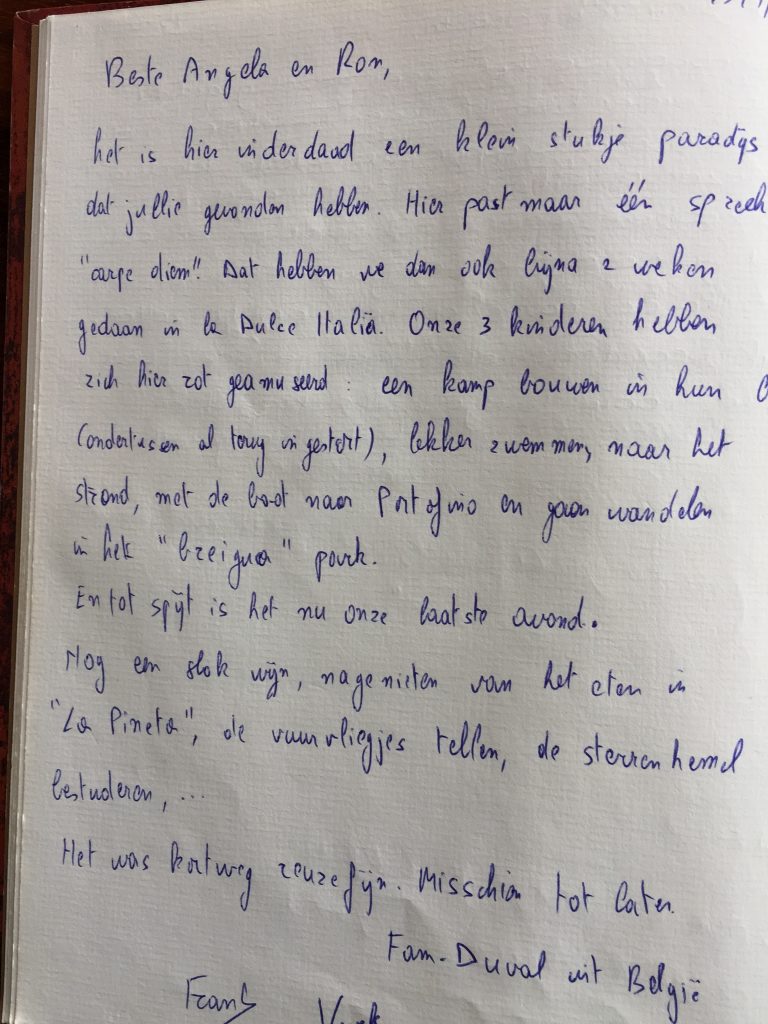 Beste Angela en Ron,
het is hier inderdaad een klein stukje paradijs
dat jullie gevonden hebben. Hier past maar één spreek
"carpe diem"! Dat hebben we dan ook bijna 2 weken
gedaan in la Dulce Italië. Onze 3 kinderen hebben
zich hier zot geamuseerd: een kamp bouwen in hun
(ondertussen al terug ingestort), lekker zwemmen, naar het
strand, met de boot naar Portofino en gaan wandelen
in het park.
En tot spijt is het nu onze laatste avond.
Nog een slok wijn, nagenieten van het eten in
"La Pineta", de vuurvliegjes tellen, de sterrenhemel
bestuderen, ...
Het was kortweg reuzefijn. Misschien tot later.
Fam. Duval uit België
Frans